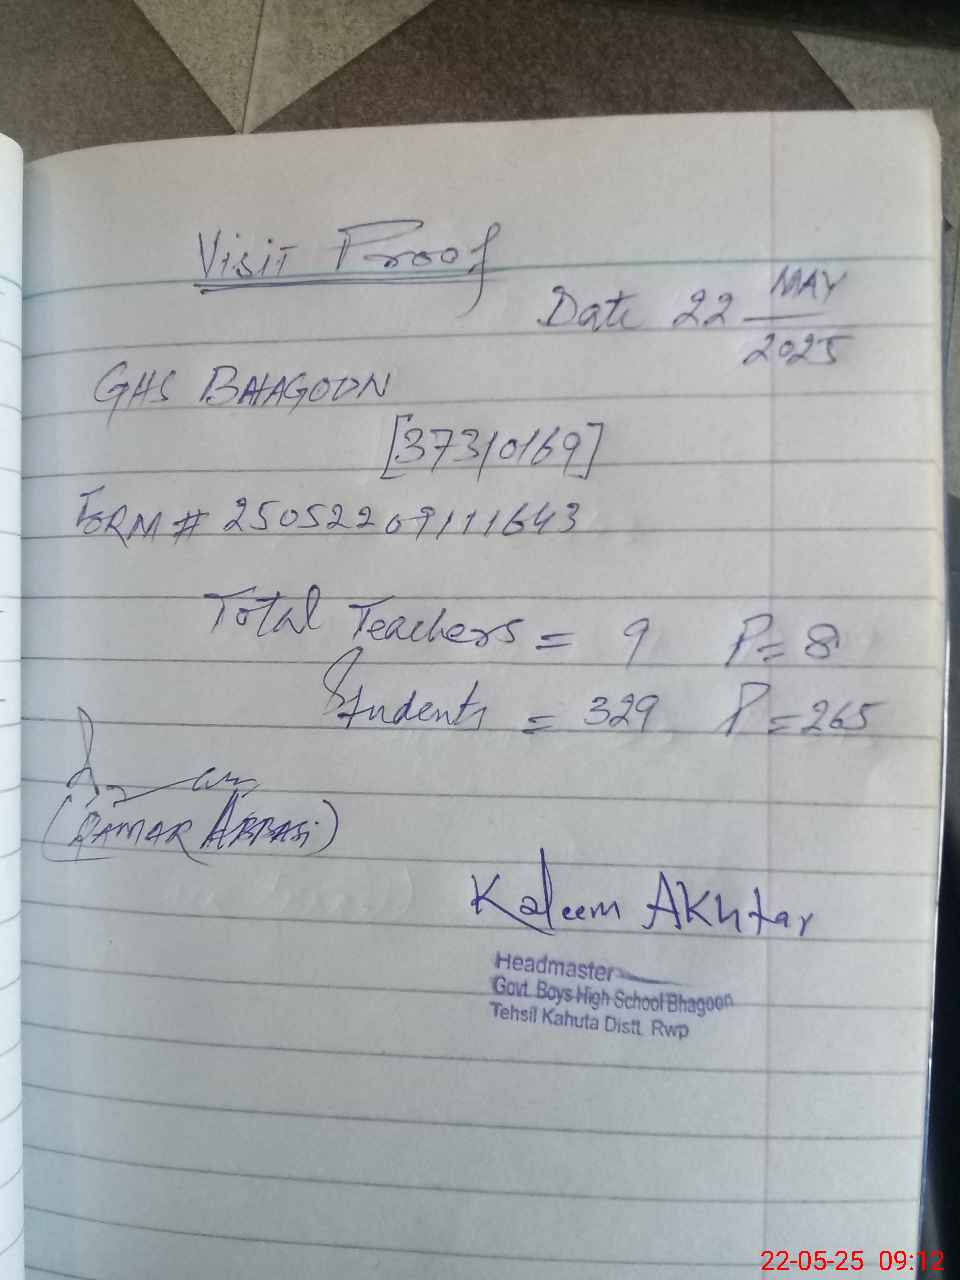 Visit Proof
Date 22 MAY
2025
GHS BHAGOON
[37310169]
FORM # 25052209111643
Total Teachers = 9 P = 8
Students = 329 P = 265
(QAMAR ABBASi)
Kaleem AKhtar
Headmaster
Govt. Boys High School Bhagoon
Tehsil Kahuta Distt. Rwp
22-05-25 09:12